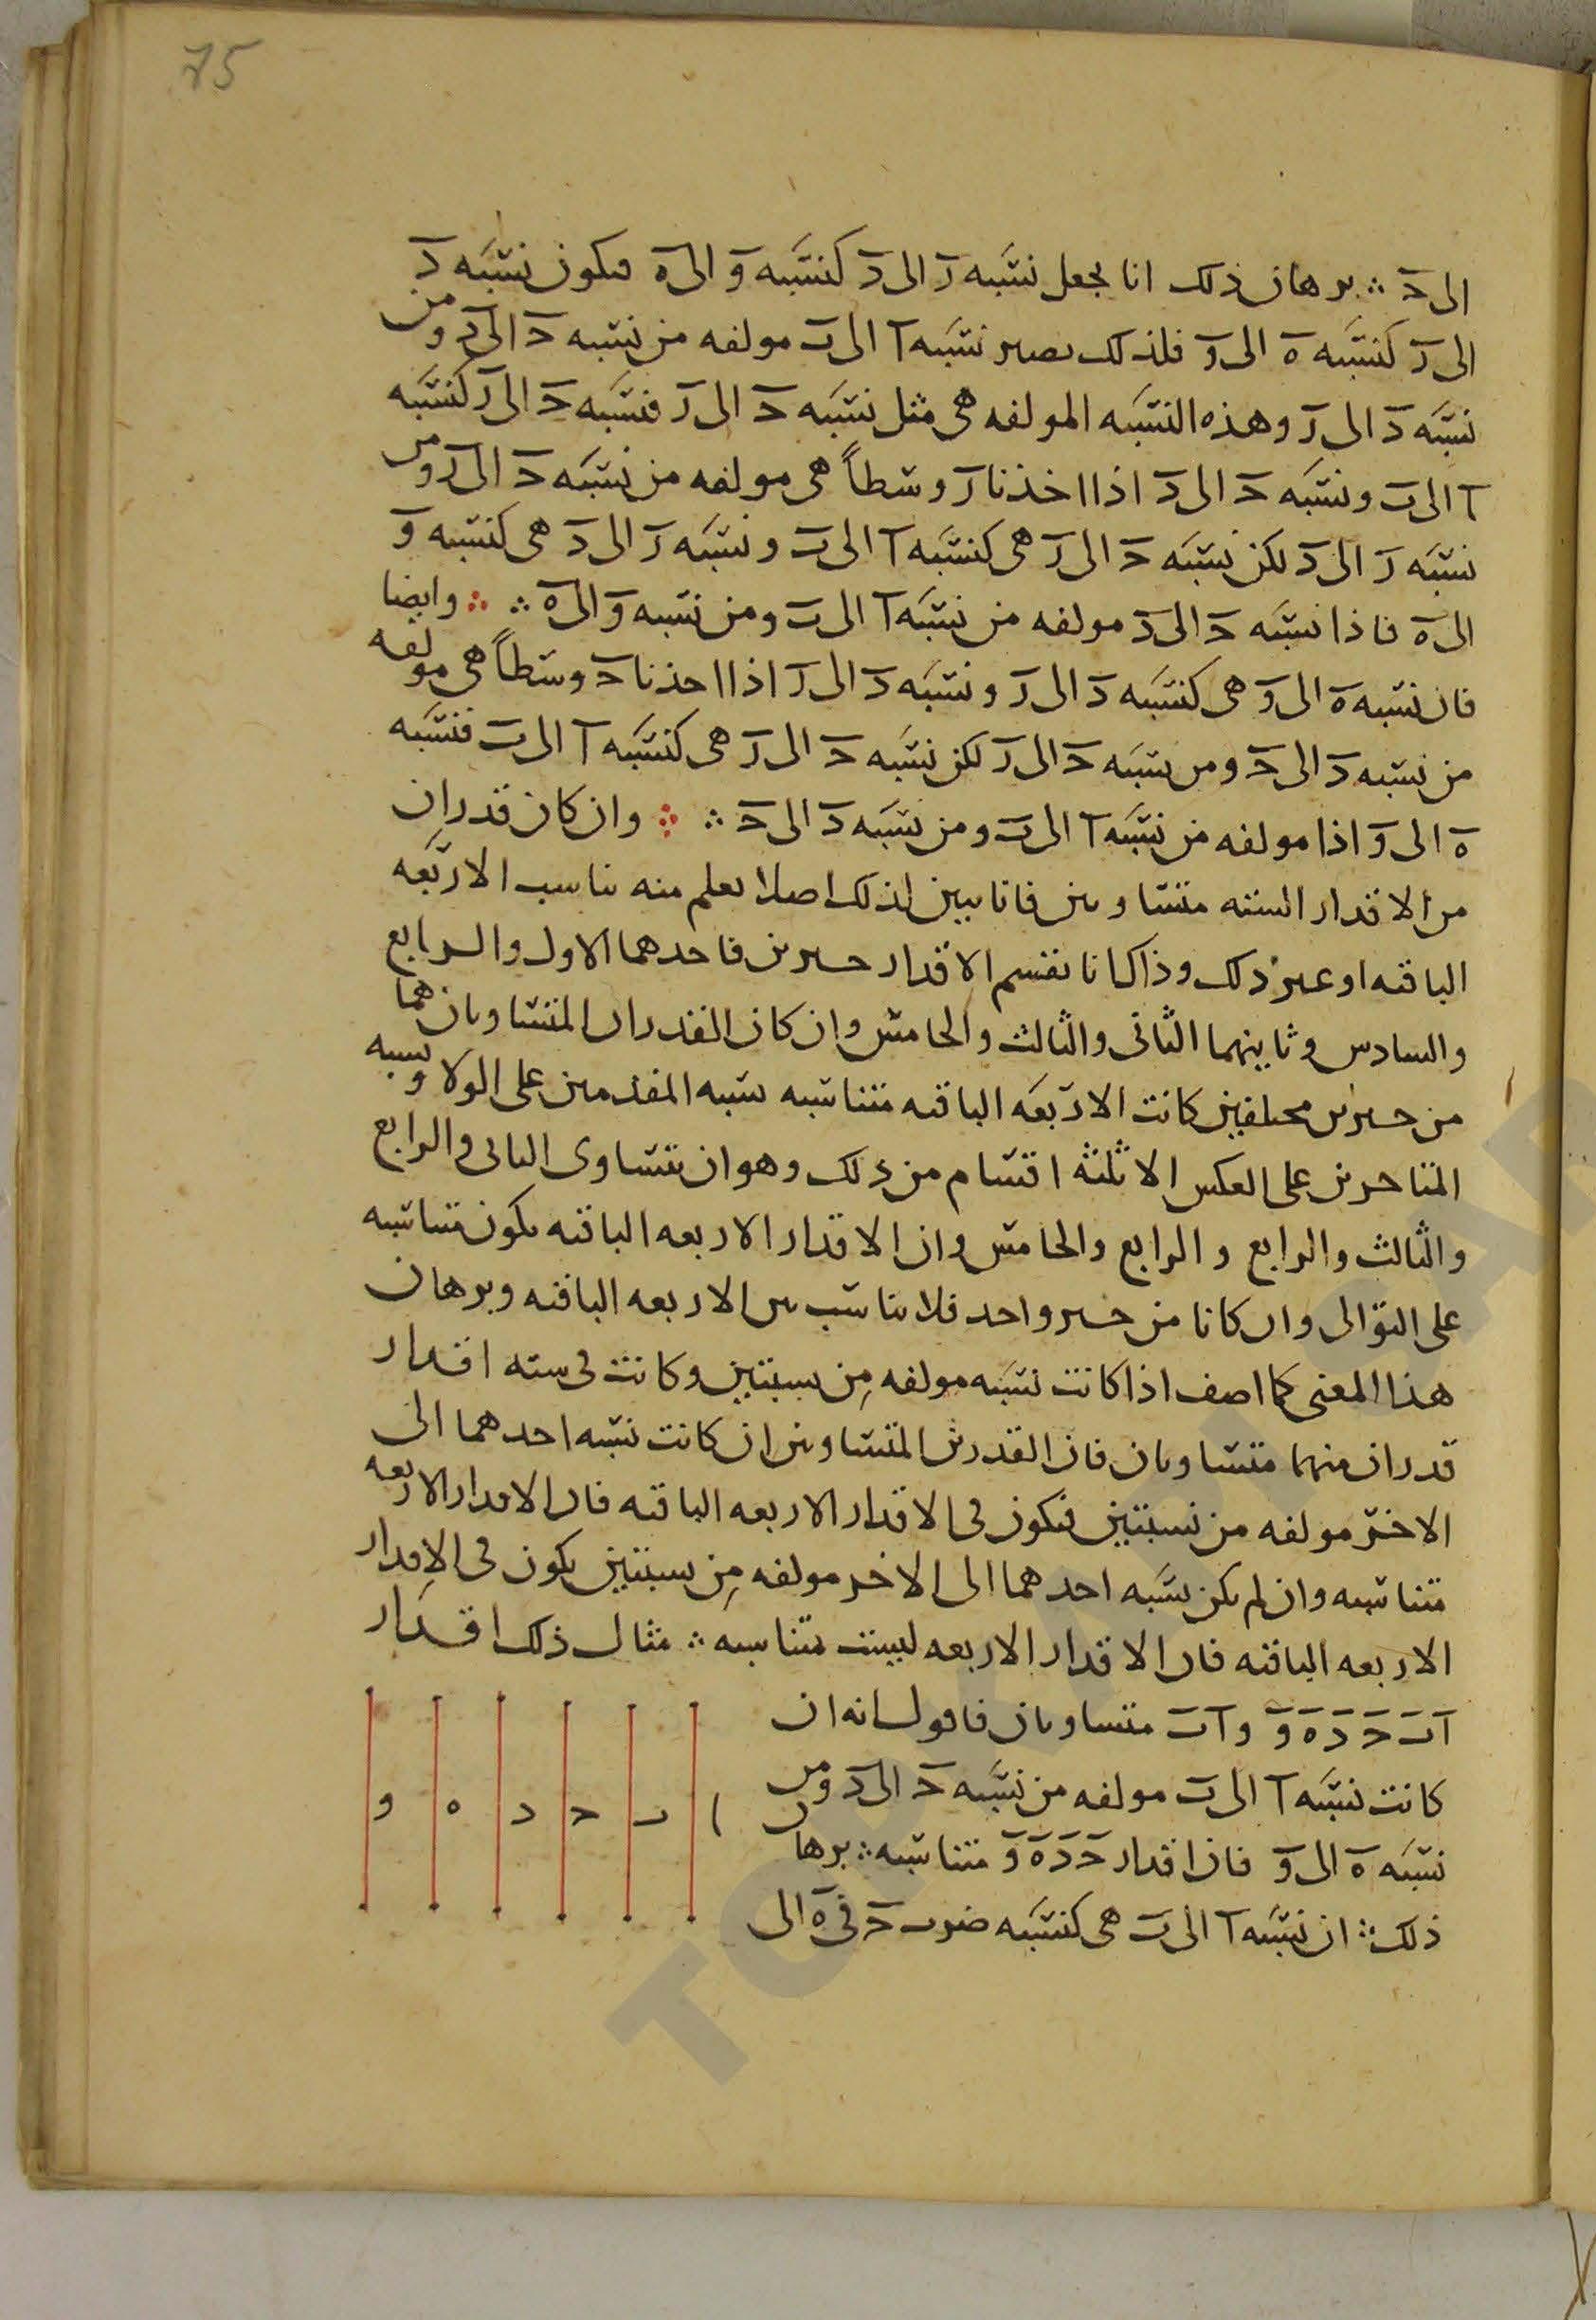 75
الى حَ ∴ برهان ذلك انا نجعل نسبه رَ الى دَ كنسبه وَ الى هَ فيكون نسبه دَ
الى رَ كنسبه هَ الى وَ فلذلك يصير نسبه آ الى بَ مولفه من نسبه حَ الى دَ ومن
نسبه دَ الى رَ وهذه النسبه المولفه هى مثل نسبه حَ الى رَ فنسبه حَ الى رَ كنسبه
آ الى بَ ونسبه حَ الى دَ اذا اخذنا رَ وسطاً هى مولفه من نسبه حَ الى رَ ومن
نسبه رَ الى دَ لكن نسبه حَ الى رَ هى كنسبه آ الى بَ ونسبه رَ الى دَ هى كنسبه وَ
الى هَ فاذا نسبه حَ الى دَ مولفه من نسبه آ الى بَ ومن نسبه وَ الى هَ ∴ ∴ وايضا
فان نسبه هَ الى وَ هى كنسبه دَ الى رَ ونسبه دَ الى رَ اذا اخذنا حَ وسطاً هى مولفه
من نسبه دَ الى حَ ومن نسبه حَ الى رَ لكن نسبه حَ الى رَ هى كنسبه آ الى بَ فنسبه
هَ الى وَ اذا مولفه من نسبه آ الى بَ ومن نسبه دَ الى حَ ∴ ∴ وان كان قدران
من الاقدار الستة متساويين فانا نبين لذلك اصلا يعلم منه تناسب الاربعه
الباقيه او غير ذلك وذاك انا نقسم الاقدار حيزين فاحدهما الاول والرابع
والسادس وثانيهما الثانى والثالث والخامس وان كان القدران المتساويان هما
من حيزين مختلفين كانت الاربعه الباقيه متناسبه نسبه المقدمين على الولا ونسبه
المتاخرين على العكس الا ثلثه اقسام من ذلك وهو ان يتساوى الثانى والرابع
والثالث والرابع والرابع والخامس وان الاقدار الاربعه الباقيه يكون متناسبه
على التوالى وان كانا من حيز واحد فلا تناسب بين الاربعه الباقيه وبرهان
هذا المعنى كما اصف اذا كانت نسبه مولفه من نسبتين وكانت فى سته اقدار
قدران منهما متساويان فان القدرين المتساويين ان كانت نسبه احدهما الى
الاخر مولفه من نسبتين فيكون فى الاقدار الاربعه الباقيه فان الاقدار الاربعه
متناسبه وان لم يكن نسبه احدهما الى الاخر مولفه من نسبتين يكون فى الاقدار
الاربعه الباقيه فان الاقدار الاربعه ليست متناسبه ∴ مثال ذلك اقدار
آ بَ حَ دَ هَ وَ وآ بَ متساويان فاقول انه ان
كانت نسبه آ الى بَ مولفه من نسبه حَ الى دَ ومن
نسبه هَ الى وَ فان اقدار حَ دَ هَ وَ متناسبه ∴ برهان
ذلك ∴ ان نسبه آ الى بَ هى كنسبه ضرب حَ فى هَ الى
ا ب ح د ه و